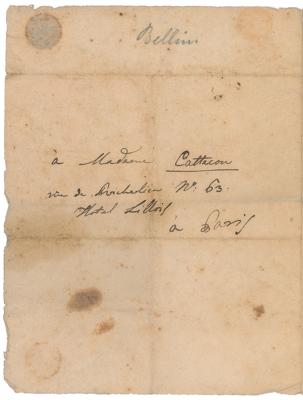 Bellini
à Madame Cattreon
rue de Richelieu N.º 63.
Hotel Lillois
à Paris